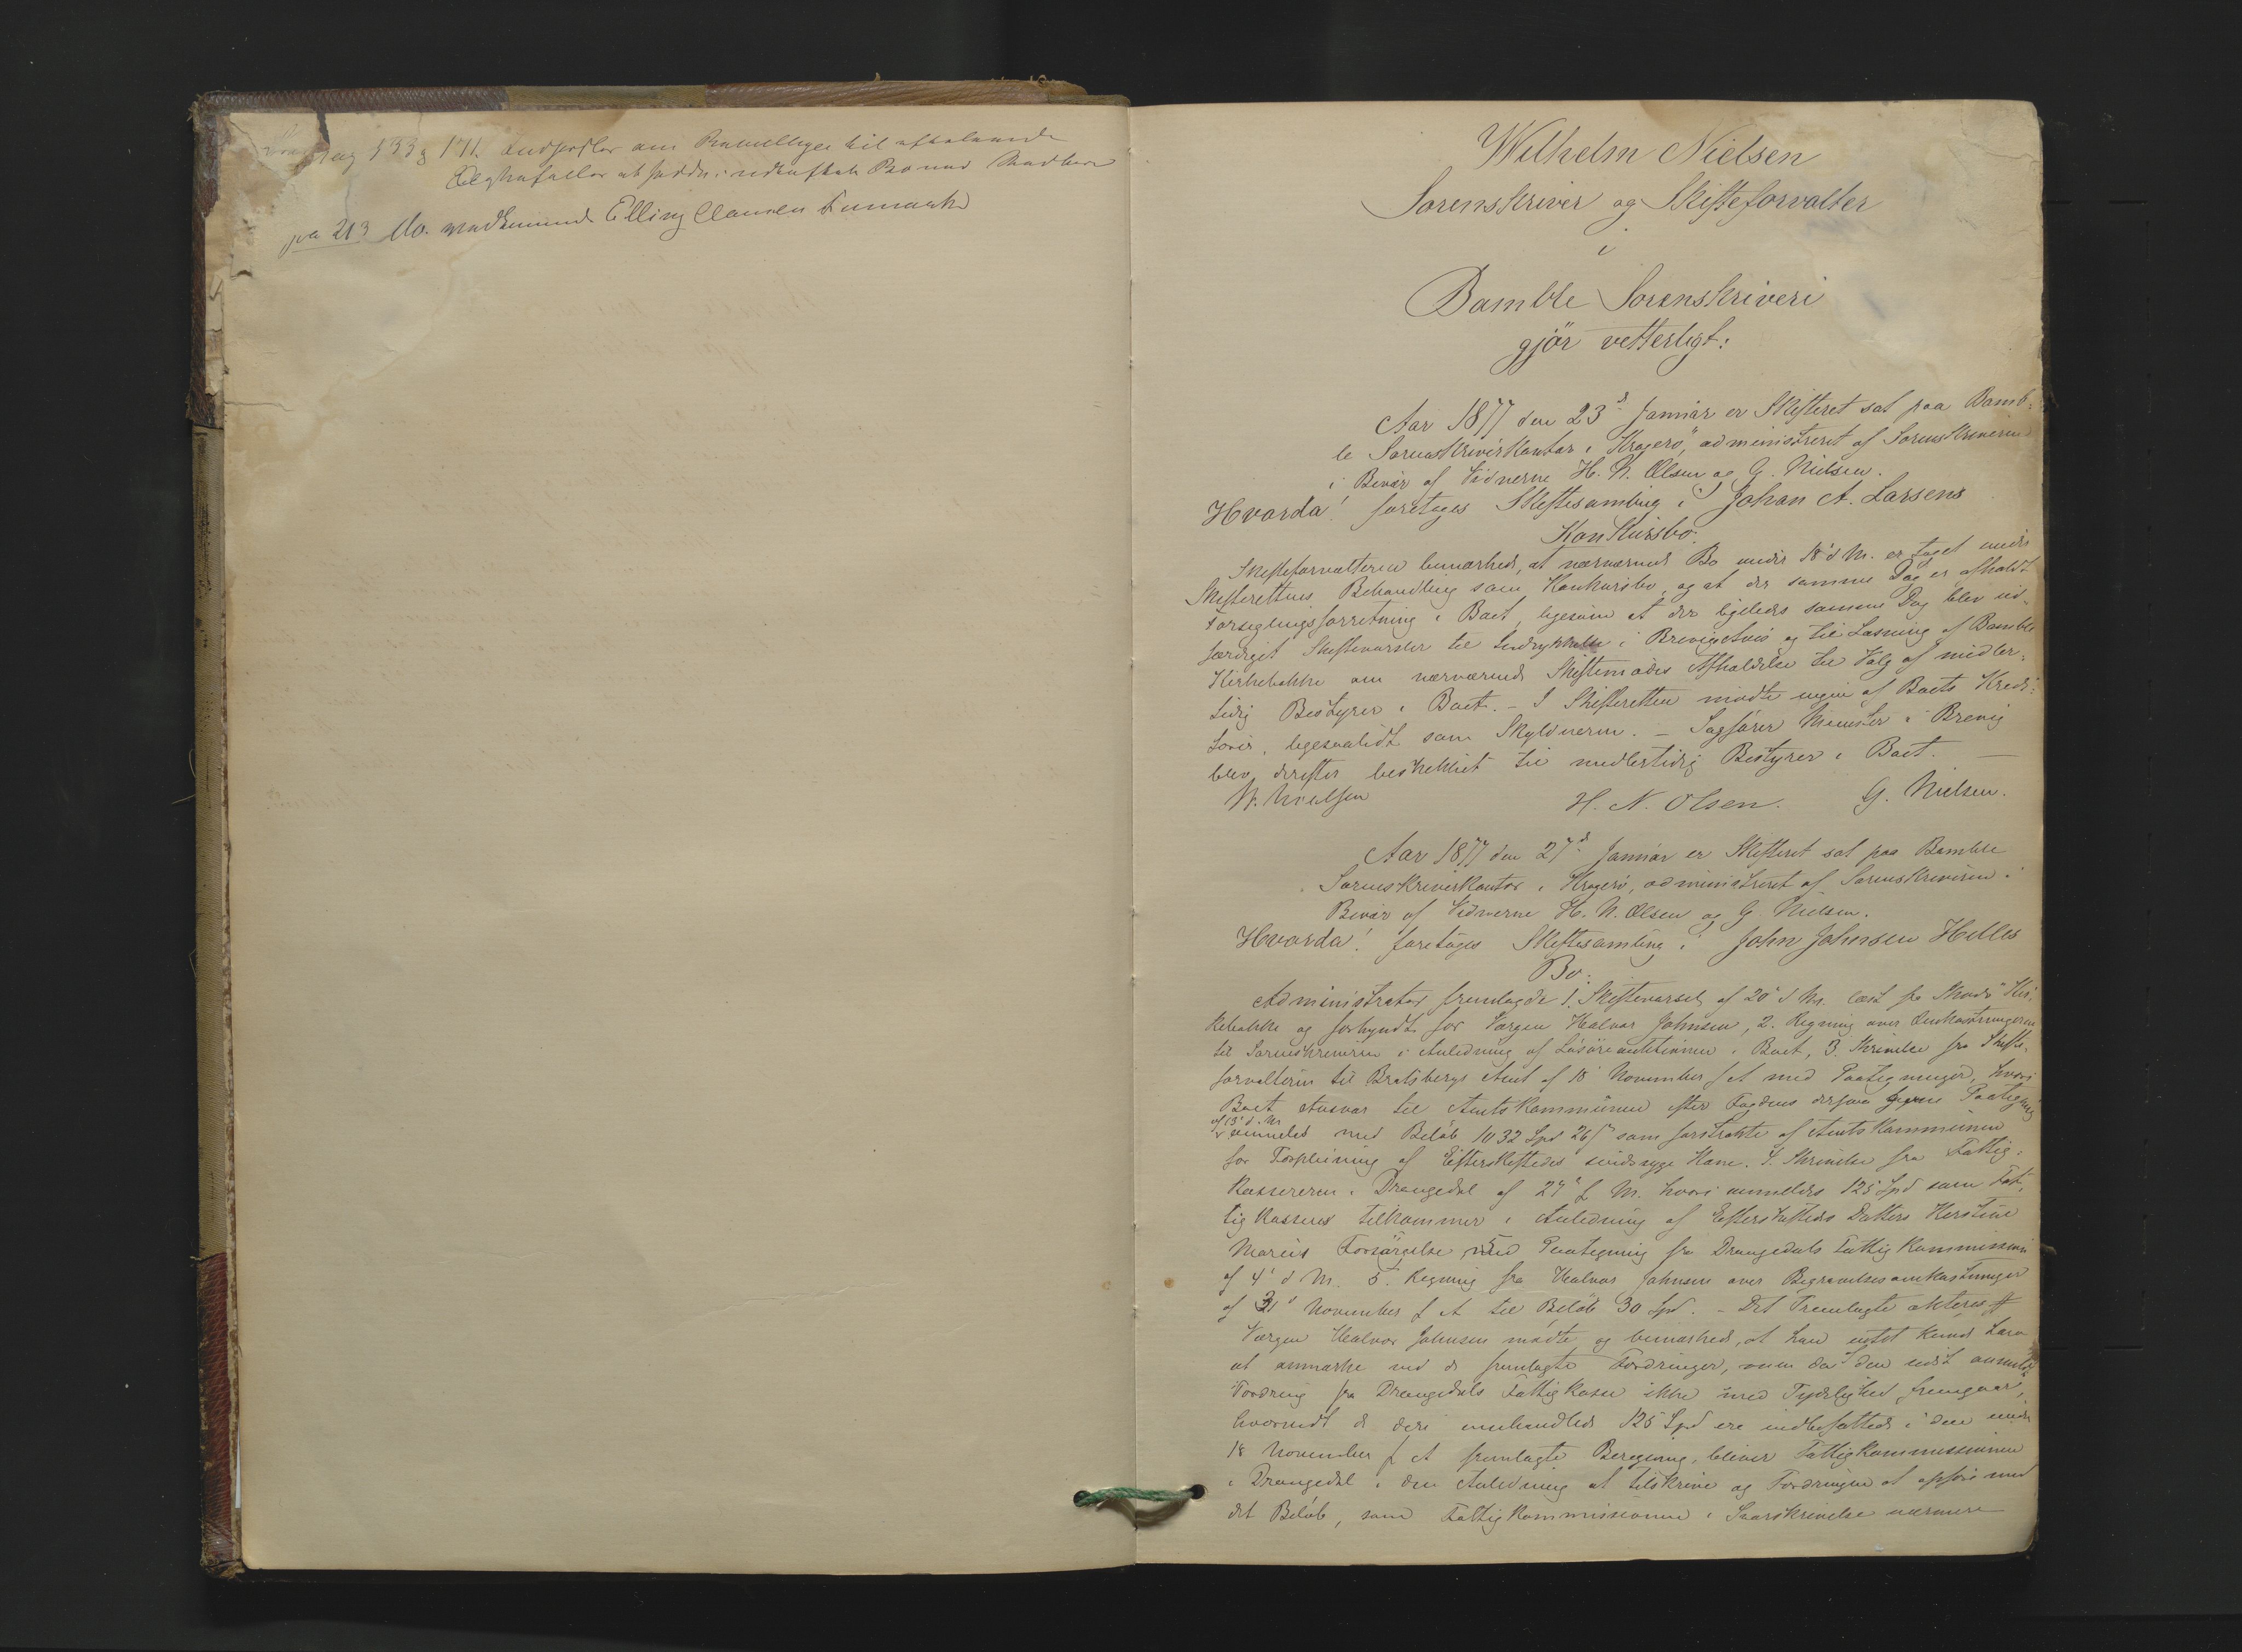 pag 133 & 171.
pa 213 do. vedkommende Elling Clausen
Wilhelm Nielsen
Sorenskriver og Skifteforvalter
i
Bamble Sorenskriveri
gjör vetterligt:
Aar 1877 den 23d Januar er Skifteret sat paa Bamb-
le Sorenskriverkontor i Kragerö, administreret af Sorenskriveren
i Bivär af Vidnerne H. N. Olsen og G. Nielsen.
Hvorda! foretoges Skiftesamling i Johan A. Larsens
Konkursbo.
Skifteforvalteren bemærkede, at nærværende Bo under 18d d. M. er taget under
Skifterettens Behandling som Konkursbo, og at der samme Dag er afholdt
Forseglingsforretning i Boet, ligesom at der ligeledes samme Dag blev ud-
færdiget Skiftevarsler til Indrykkelse i Brevig Avis og til Læsning af Bamble
Kirkebakke om nærværende Skiftemödes Afholdelse til Valg af midler-
tidig Bestyrer i Boet. – I Skifteretten mödte ingen af Boets Kredi-
torer, ligesaalidt som Skyldneren. – Sagförer Minster i Brevig
blev derefter beskikket til midlertidig Bestyrer i Boet. –
W. Nielsen H. N. Olsen. G. Nielsen.
Aar 1877 den 27d Januar er Skifteret sat paa Bamble
Sorenskriverkontor i Kragerö, administreret af Sorenskriveren i
Bivär af Vidnerne H. N. Olsen og G. Nielsen.
Hvorda! foretoges Skiftesamling i John Johnsen Helles
Bo.
Administrator fremlagde 1. Skiftevarsel af 20d d. M. læst fra Skaadö Kir-
kebakke og forkyndt for Værgen Halvor Johnsen, 2. Regning over Omkostningerne
til Sorenskriveren i Anledning af Lösöreauktionen i Boet, 3. Skrivelse fra Skifte-
forvalteren til Bratsbergs Amt af 18 November f. A. med Paategninger, hvori
Boet Ansvar til Amtskommunen efter Fogdens derpaa givne Paategning
af 13d d. M.
anmeldes med Belöb 1032 Spd 26 s som forstrakte af Amtskommunen
for Forpleining af Efterskiftedes sindssyge Kone. 4. Skrivelse fra Fattig-
kassereren i Drangedal af 24d f. M. hvori anmeldes 125 Spd som Fat-
tigkassen tilkommer i Anledning af Efterskiftedes Datters Kerstine
Maries Forsörgelse med Paategning fra Drangedals Fattigkommission
af 4d d. M. 5. Regning fra Halvor Johnsen over Begravelsesomkostninger
af 21d November f. A. til Belöb 30 Spd. – Det Fremlagte akteres.
Værgen Halvor Johnsen mödte og bemærkede, at han intet kunde have
at anmærke ved de fremlagte Fordringer, men da den sidst anmeldte
Fordring fra Drangedals Fattigkasse ikke med Tydelighed fremgaar,
hvorvidt de deri omhandlede 125 Spd ere indbefattede i den under
18 November f. A. fremlagte Beregning, bliver Fattigkommissionen
i Drangedal i den Anledning at tilskrive og Fordringen at opföre med
det Belöb, som Fattigkommissionen i Svarskrivelse nærmere